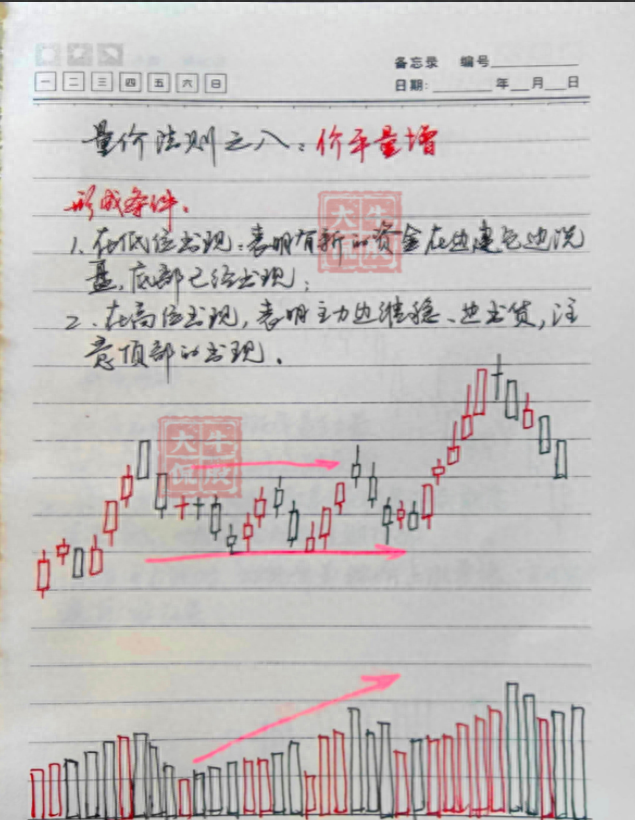 备忘录 编号
一 二 三 四 五 六 日
日期: 年 月 日
量价法则之八：价平量增
形成条件.
1、在低位出现：表明有新的资金在边建仓边洗
盘，底部已经出现；
2、在高位出现，表明主力边维稳、边出货，注
意顶部的出现.
大牛
侃股
大牛
侃股